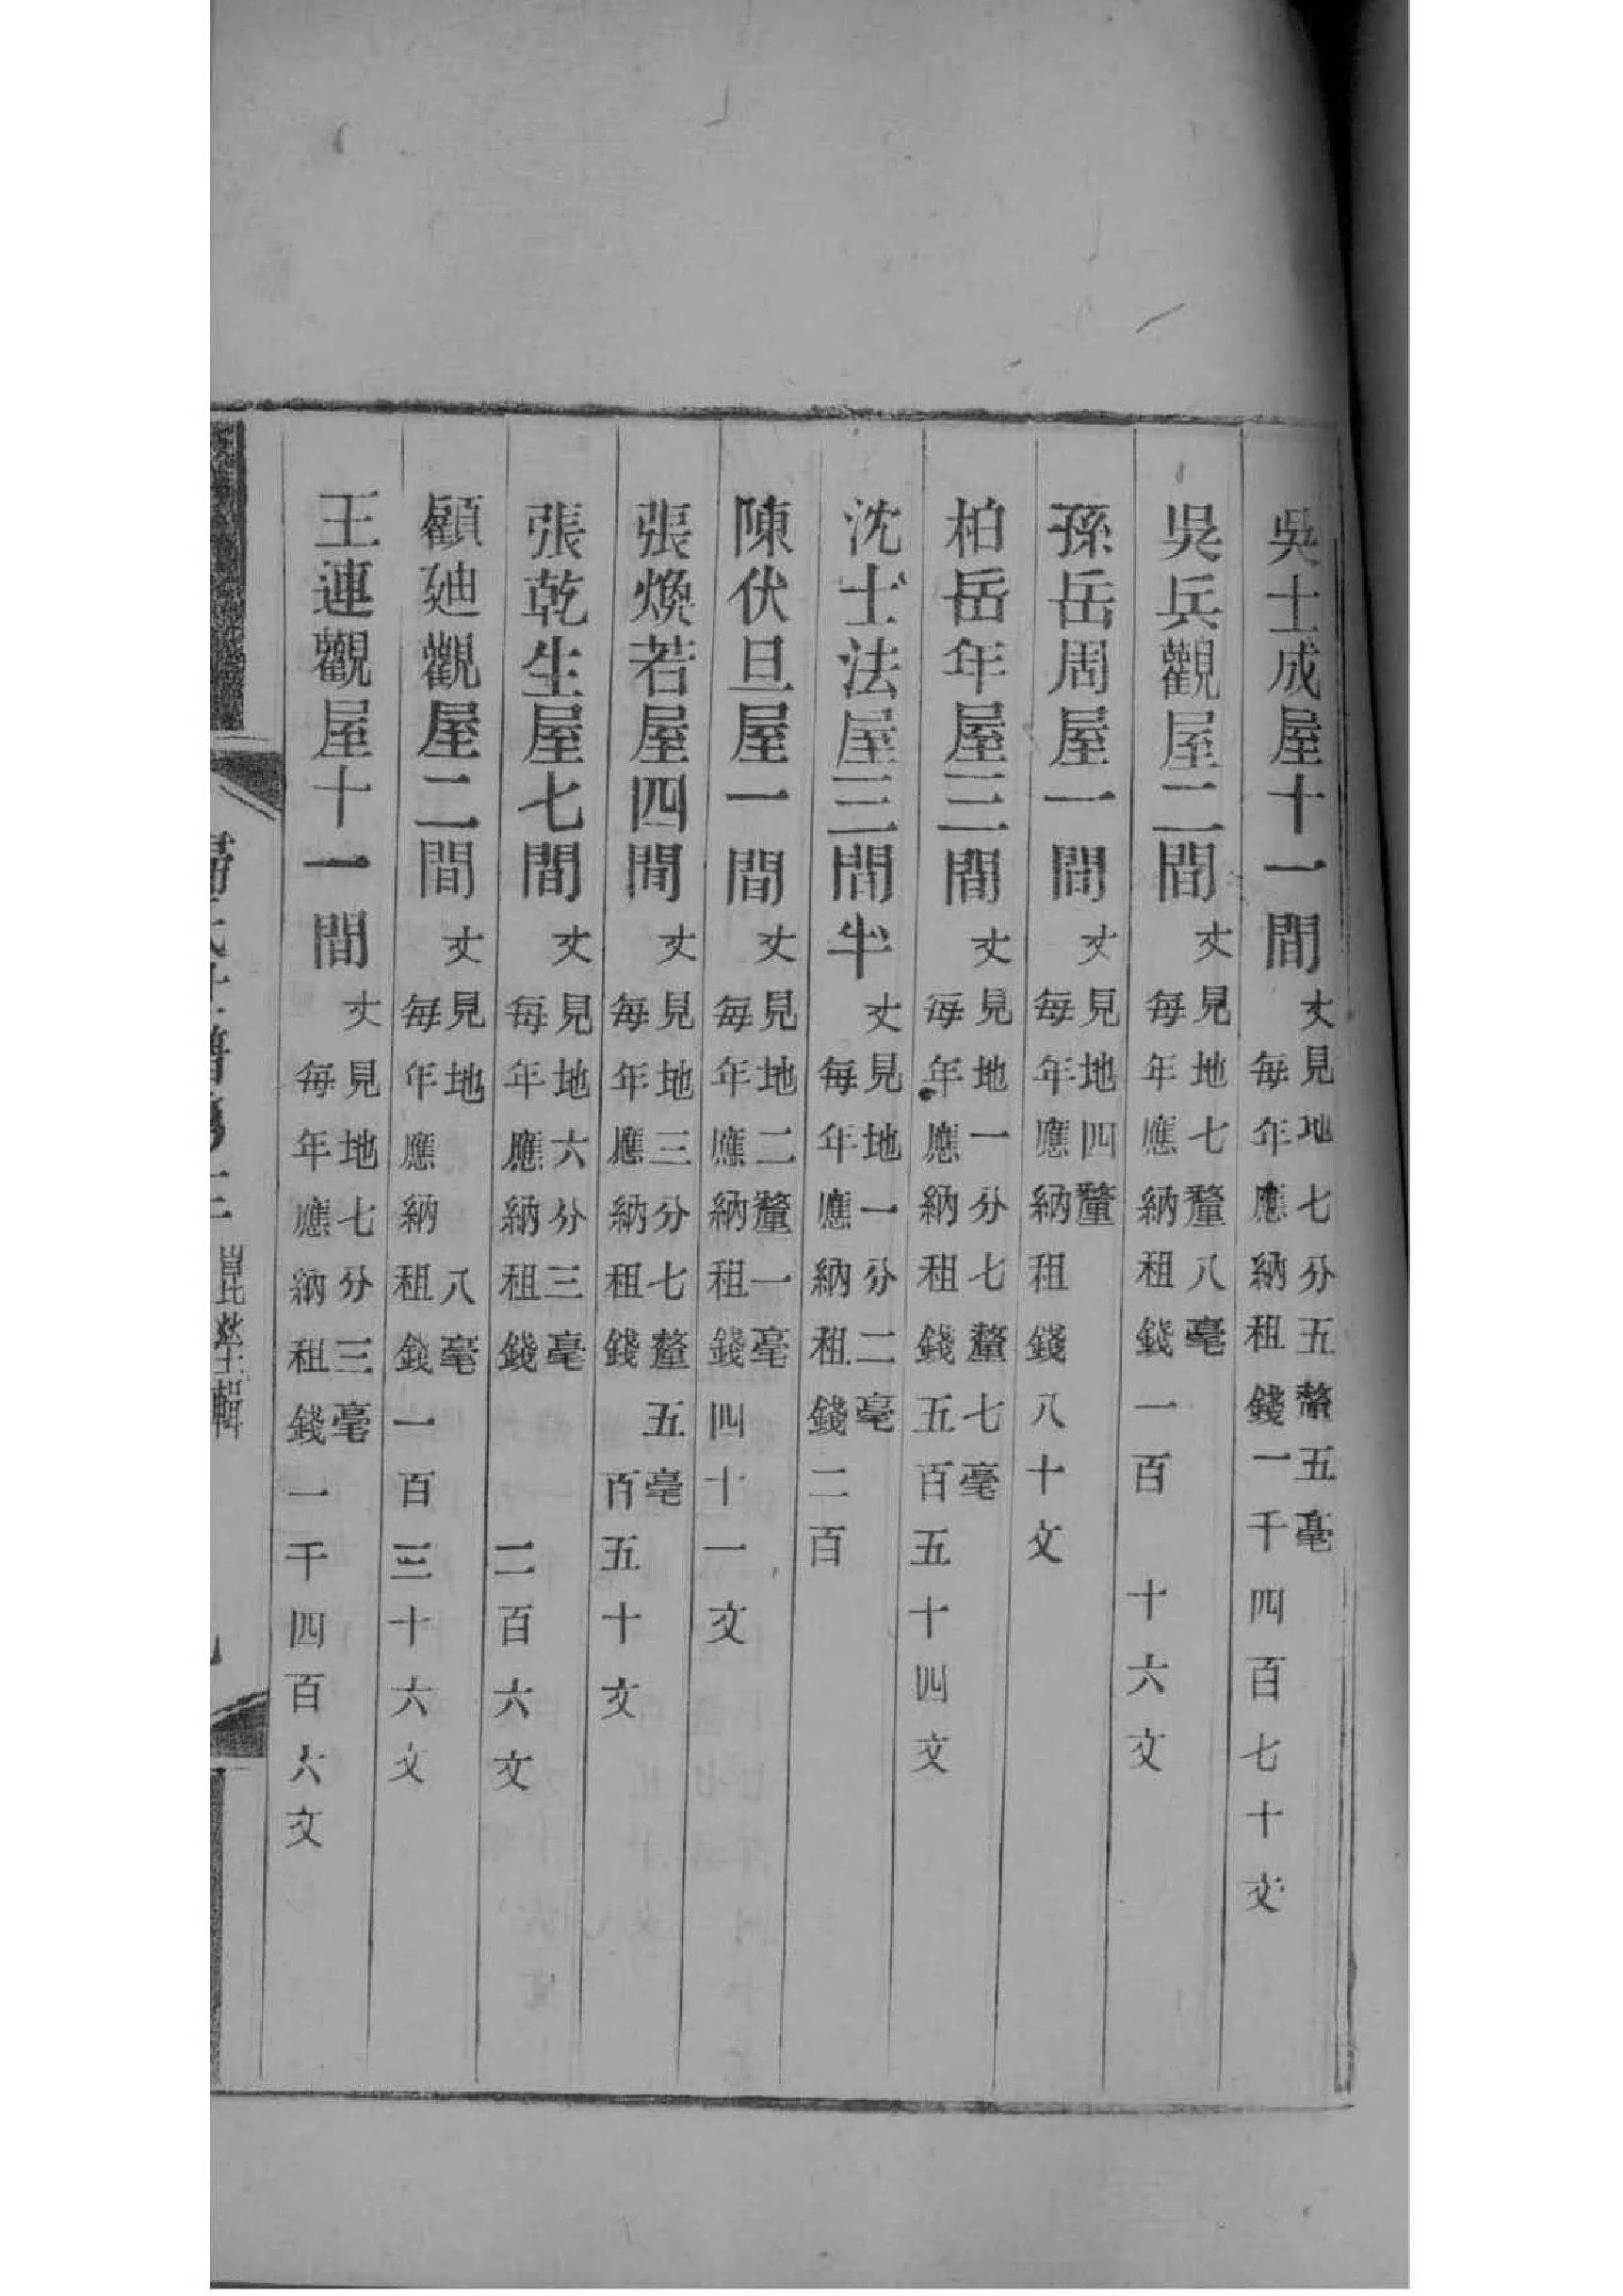 吳士成屋十一間 丈見地七分五釐五毫 每年應納租錢一千四百七十文
吳兵觀屋二間 丈見地七釐八毫 每年應納租錢一百 十六文
孫岳周屋一間 丈見地四釐 每年應納租錢八十文
柏岳年屋三間 丈見地一分七釐七毫 每年應納租錢五百五十四文
沈士法屋三間半 丈見地一分二毫 每年應納租錢二百
陳伏旦屋一間 丈見地二釐一毫 每年應納租錢四十一文
張煥若屋四間 丈見地三分七釐五毫 每年應納租錢 百五十文
張乾生屋七間 丈見地六分三毫 每年應納租錢 二百六文
顧廸觀屋二間 丈見地 八毫 每年應納租錢一百三十六文
王連觀屋十一間 丈見地七分三毫 每年應納租錢一千四百六文